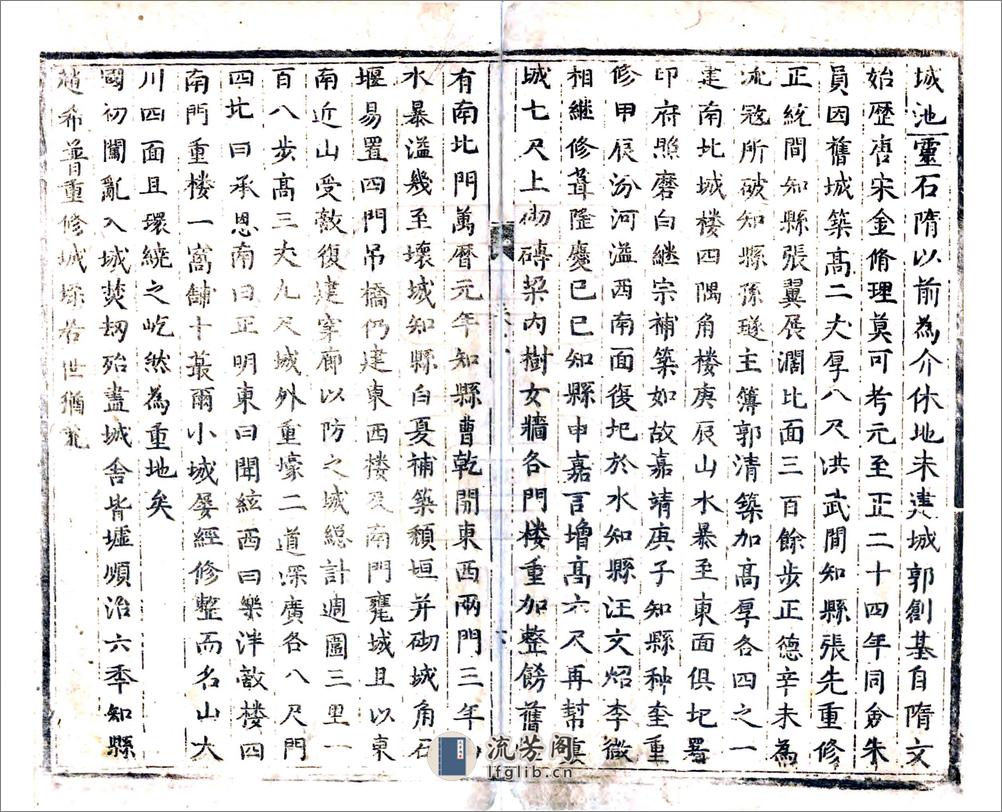 城池靈石隋以前為介休地未建城郭創基自隋文
始歷唐宋金脩理莫可考元至正二十四年同僉朱
員因舊城築高二丈厚八尺洪武間知縣張先重修
正統間知縣張翼展濶北面三百餘步正德辛未為
流冦所破知縣孫璲主簿郭清築加高厚各四之一
建南北城楼四隅角楼庚辰山水暴至東面俱圮署
印府照磨白継宗補築如故嘉靖庚子知縣种奎重
修甲辰汾河溢西南面復圮於水知縣汪文炤李微
相継修葺隆慶己巳知縣申嘉言增高六尺再幇
城七尺上砌磚梁内樹女牆各門楼重加整餝舊
有南北門萬曆元年知縣曹乾開東西兩門三年
水暴溢幾至壞城知縣白夏補築頽垣并砌城角石
堰易置四門吊橋仍建東西楼及南門甕城且以東
南近山受敵復建穿廊以防之城緫計週圍三里一
百八步高三丈九尺城外重壕二道深廣各八尺門
四北曰承恩南曰正明東曰聞絃西曰樂泮敵楼四
南門重楼一窩鋪十蕞爾小城屡經修整而名山大
川四面且環繞之屹然為重地矣
國初闖亂入城焚刼殆盡城舍皆墟順治六季知縣
趙希普重修城垜若世猶
流芳阁
lfglib.cn